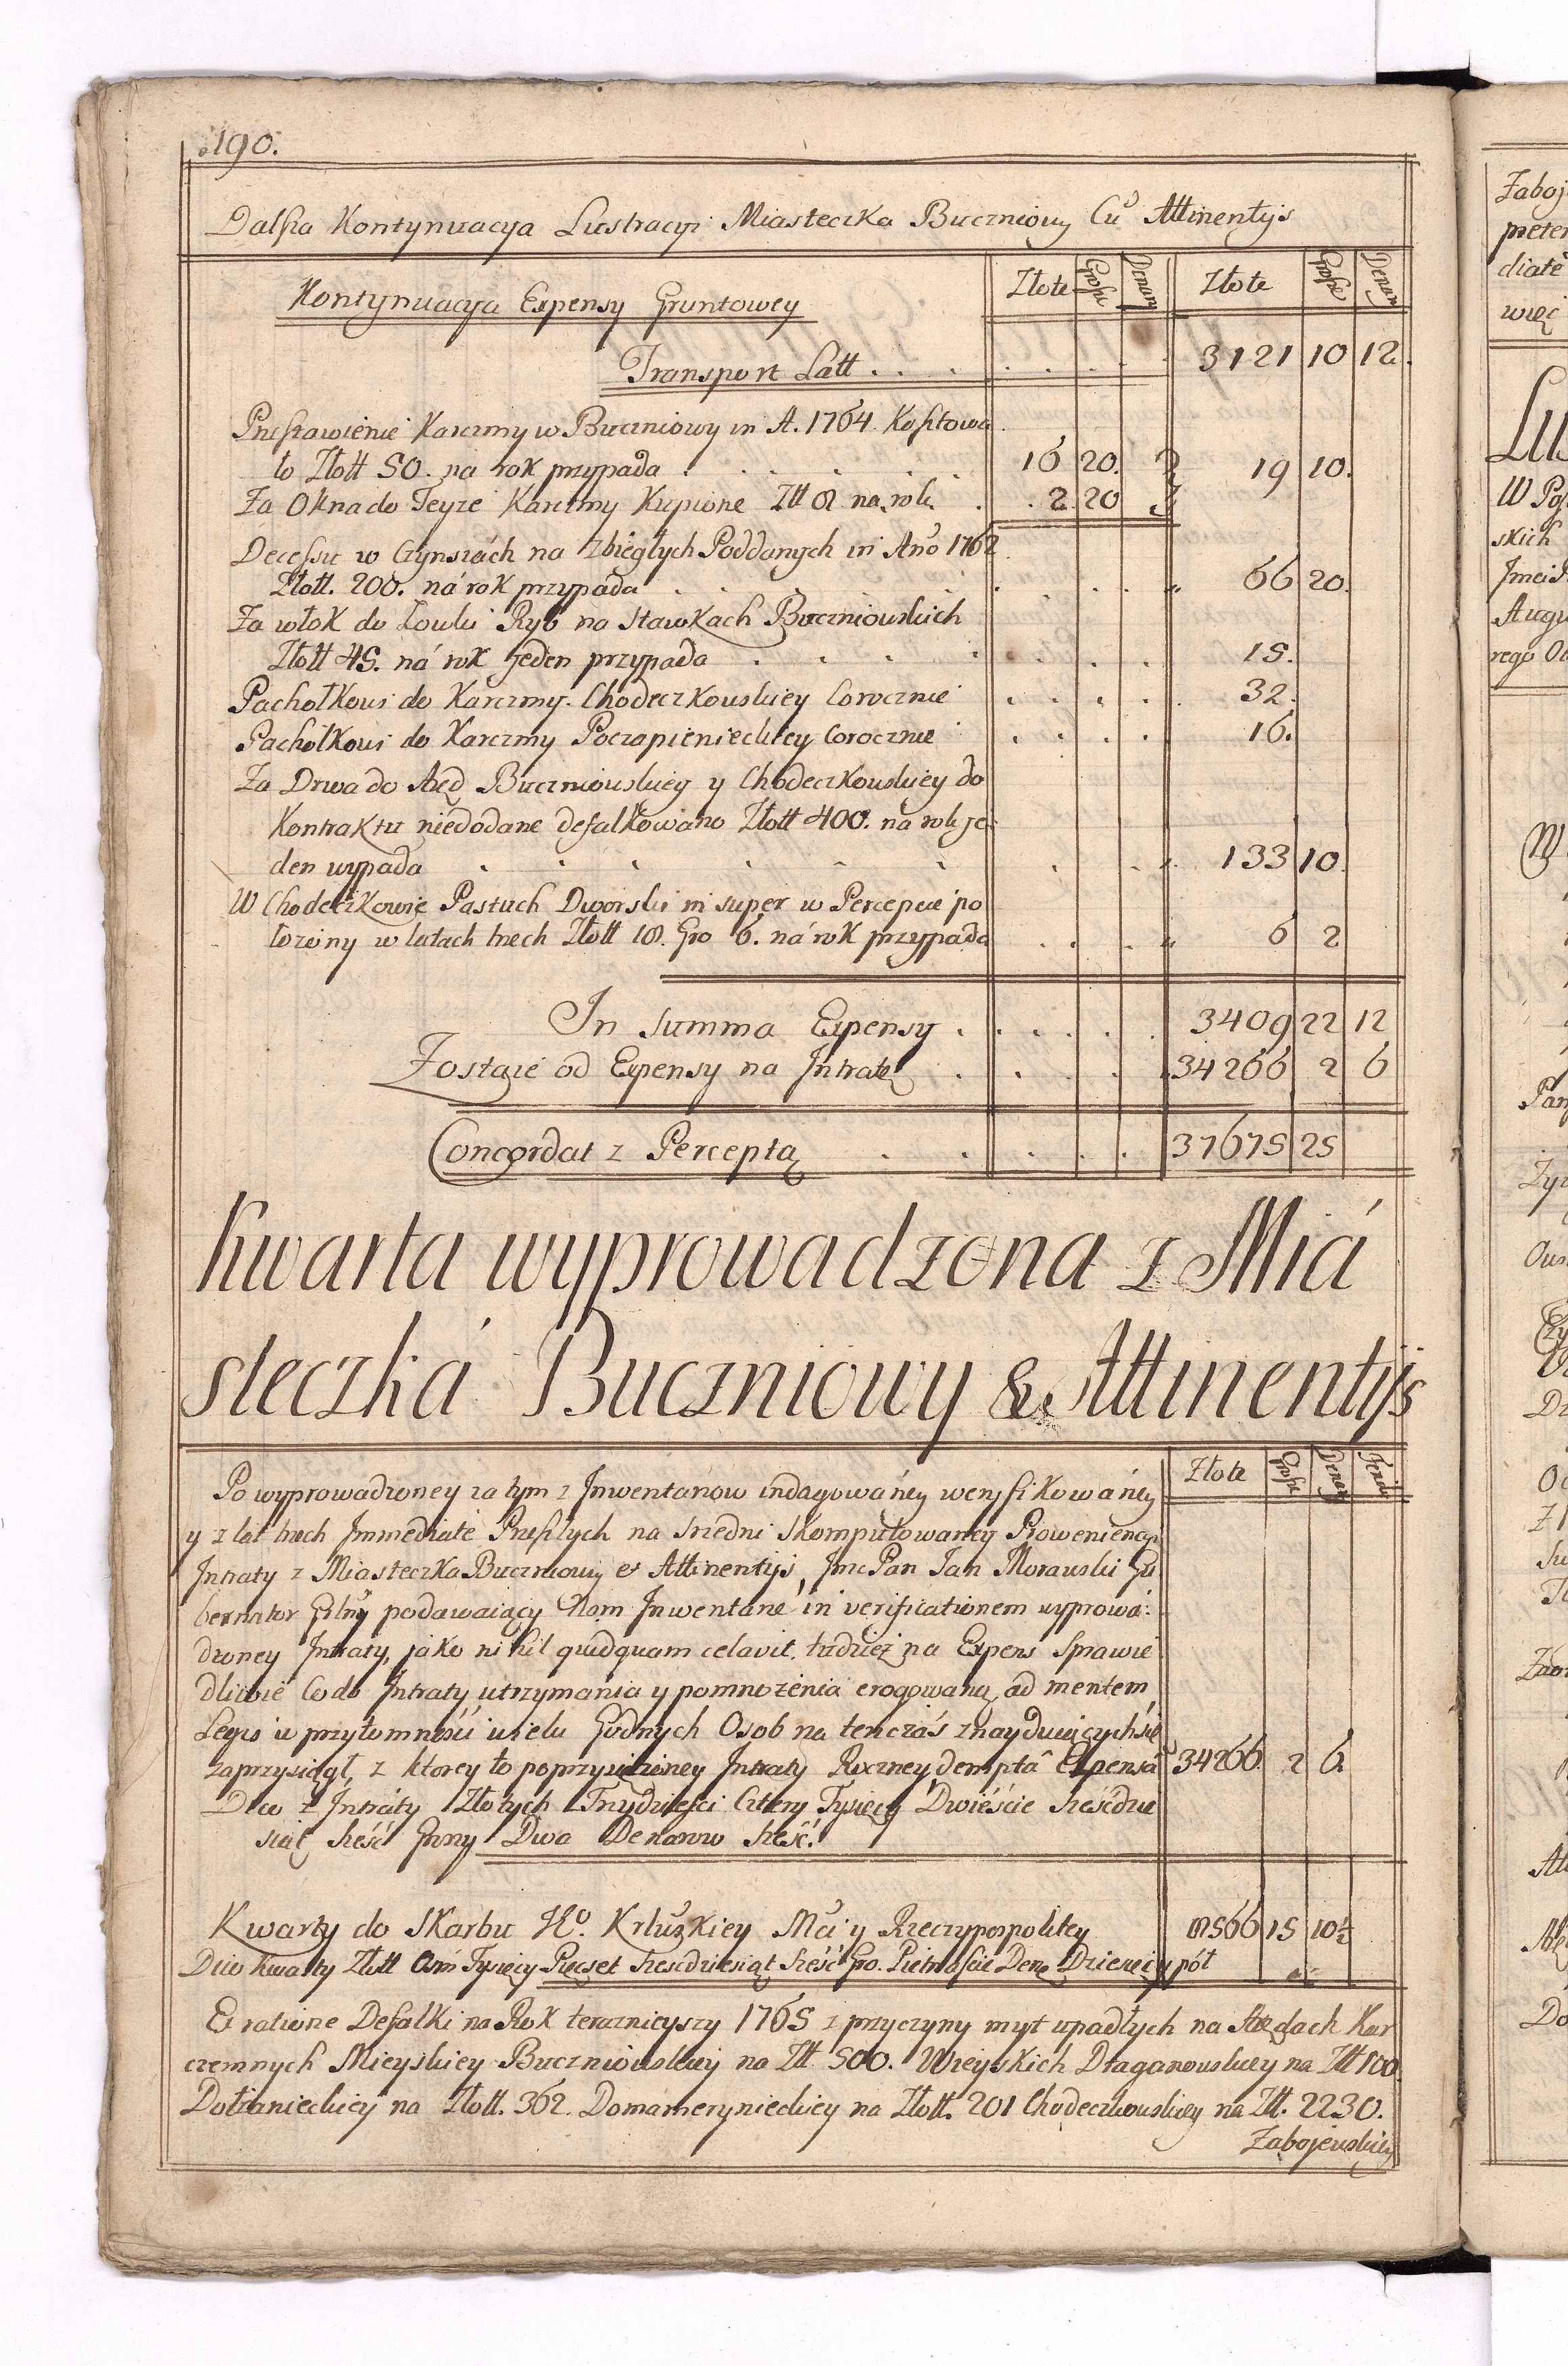 190.
Dalsza Kontynuacya Lustracyi Miasteczka Buczniowy Cu Attinentijs
Kontynuacya Expensy Gruntowey Złote Grosze Denary Złote Grosze Denary
Transport Latt . . . 3121 10 12.
Przestawienie Karczmy w Buczniowy in A. 1764. Kosztowa
ło Złott 50. na rok przypada 16 20. 19 10.
Za Okna do Teyże Karczmy Kupione Złł 8 na rok . 2 20
Decessu w Czynszach na Zbiegłych Poddanych in Año 1762
Złott. 200. ná rok przypada 66 20.
Za włok do Łowki Ryb na Stawkach Buczniowskich
Złott 45. ná rok jeden przypada 15.
Pachołkowi do Karczmy Chodeczkowskiey Corocznie 32.
Pachołkowi do Karczmy Poczapienieckiey Corocznie 16.
Za Drwa do Aręd Buczniowskiey y Chodeczkowskiey do
Kontraktu niedodane defalkowano Złott 400. na rok je
den wypada 133 10
W Chodeczkowie Pastuch Dworski in super w Percepcie po
łożony w latach trzech Złott 18. Gro 6. ná rok przypada 6 2
In Summa Expensy . 3409 22 12
Zostaie od Expensy na Intratę 34266 2 6
Concordat z Perceptą 37675 25
Kwarta wyprowadzona z Miá
steczká Buczniowy & Attinentijs
Złote Grosze Denary
Po wyprowadzoney za tym z Inwentarzow indagowáney weryfikowáney
y z lat trzech Immediate Przeszłych na srzedni skomputowaney Prowieniencyi
Intraty z Miasteczka Buczniowy et Attinentijs, Jmc Pan Jan Morawski Gu
bernator podawaiący Nam Inwentarze in verificationem wyprowa-
dzoney Intraty, jako nihil quidquam celavit, tudzież na Expens Sprawie
dliwie Co do Intraty utrzymania y pomnożenia erogowaną ad mentem
Legis w przytomności wielu Godnych Osob na tenczás znayduiących się
zaprzysiągł, z ktorey to poprzysiężoney Intraty Roczney dempta Expensa 34266. 2 6
Złotych Trzydzieści Cztery Tysięcy Dwieście Sześćdzie
siąt Sześć Groszy Dwa Denarow Sześć.
Kwarty do Skarbu Kº. Mci y Rzeczypospolitey 8566 15 10½
Złott Ośm Tysięcy Pięcset Sześcdziesiąt Sześć Gro. Pietnaście Dena Dziesięć y pół
Et ratione Defalki na Rok teraznieyszy 1765 z przyczyny myt upadłych na Arędach Kar
czemnych Mieyskiey Buczniowskiey na Złł 500. Wieyskich Draganowskiey na Złł 100.
Dołżanieckiey na Złott. 362. Domamorynieckiey na Złott. 201 Chodeczkowskiey na Złł. 2230.
Zabojewskiey